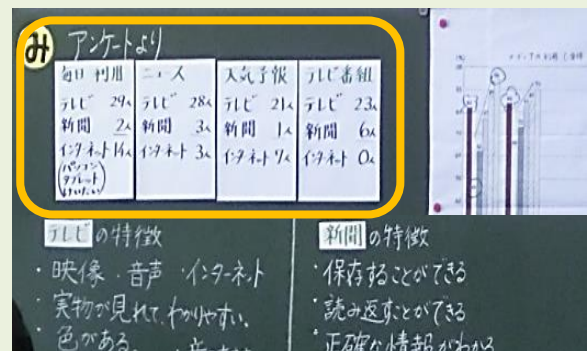 み
アンケートより
毎日利用
テレビ 29人
新聞 2人
インターネット 14人
(パソコン
タブレット
けいたい)
ニュース
テレビ 28人
新聞 3人
インターネット 3人
天気予報
テレビ 21人
新聞 1人
インターネット 7人
テレビ番組
テレビ 23人
新聞 6人
インターネット 0人
テレビの特徴
・映像・音声・インターネット
・実物が見れて、わかりやすい。
・色がある
新聞の特徴
・保存することができる
・読み返すことができる
・正確な情報がわかる